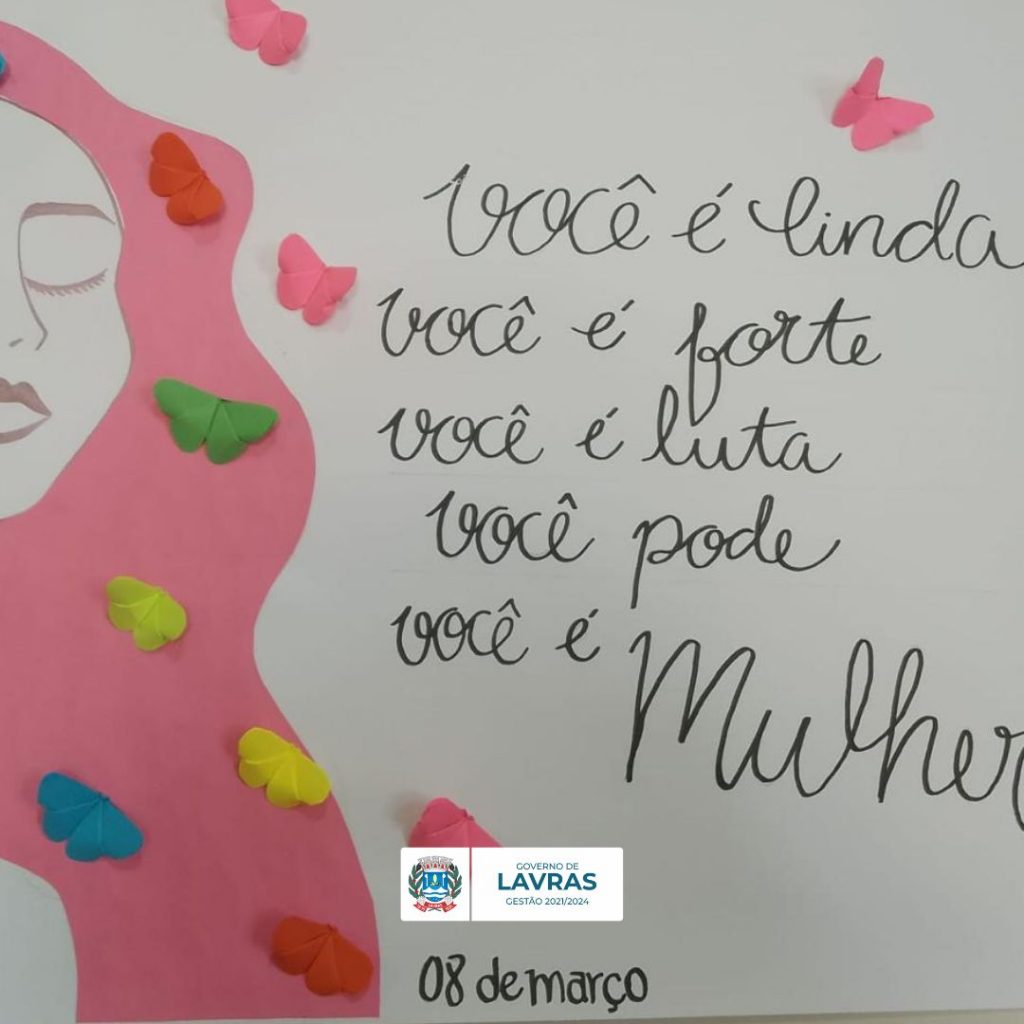 você é linda
você é forte
você é luta
você pode
você é Mulher
GOVERNO DE
LAVRAS
GESTÃO 2021/2024
08 de março